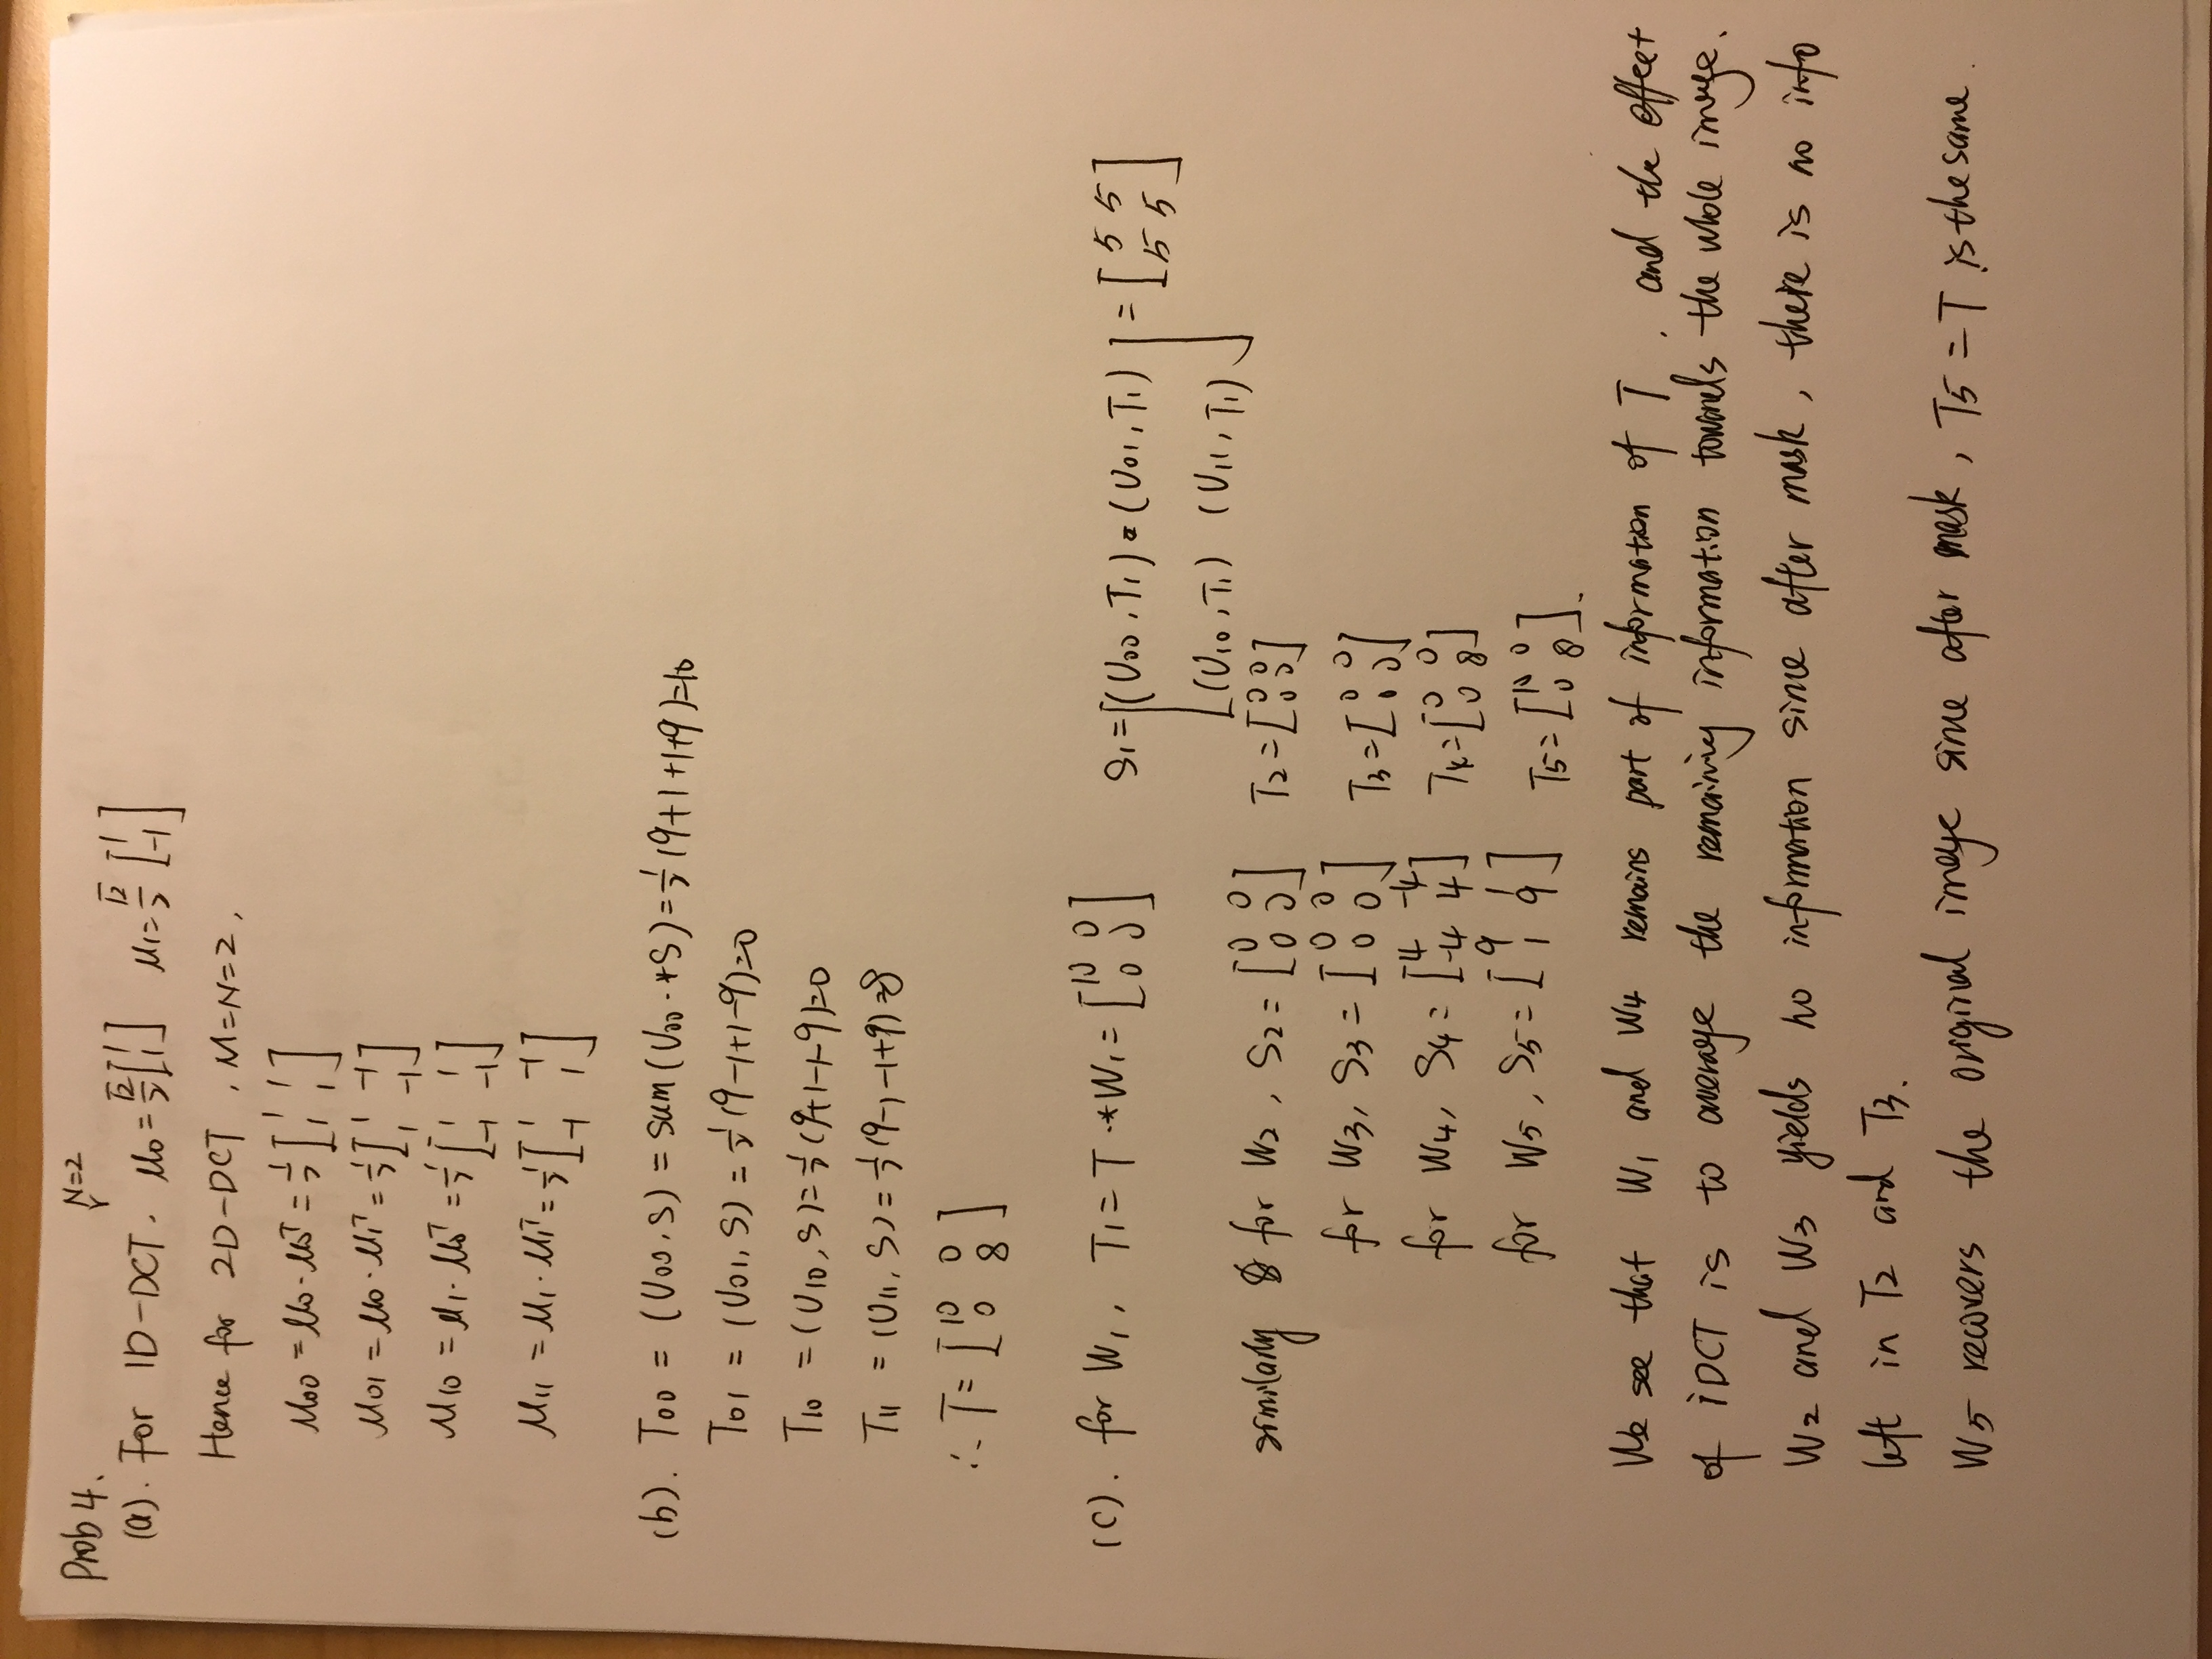 Prob 4.
N=2
(a). For 1D-DCT. μ0 = √2/2 [1 1] μ1 = √2/2 [1 -1]
Hence for 2D-DCT, M=N=2,
μ00 = μ0·μ0ᵀ = 1/2 [1 1; 1 1]
μ01 = μ0·μ1ᵀ = 1/2 [1 -1; 1 -1]
μ10 = μ1·μ0ᵀ = 1/2 [1 1; -1 -1]
μ11 = μ1·μ1ᵀ = 1/2 [1 -1; -1 1]
(b). T00 = (U00, S) = sum(U00 .*S) = 1/2 (9+1+1+9)=10
T01 = (U01, S) = 1/2 (9-1+1-9)=0
T10 = (U10, S) = 1/2 (9+1-1-9)=0
T11 = (U11, S) = 1/2 (9-1-1+9)=8
∴ T = [10 0; 0 8]
(c). for W1, T1 = T .*W1 = [10 0; 0 0] S1 = [(U00, T1) (U01, T1); (U10, T1) (U11, T1)] = [5 5; 5 5]
similarly for W2, S2 = [0 0; 0 0] T2 = [0 0; 0 0]
for W3, S3 = [0 0; 0 0] T3 = [0 0; 0 0]
for W4, S4 = [4 -4; -4 4] T4 = [0 0; 0 8]
for W5, S5 = [9 1; 1 9] T5 = [10 0; 0 8].
We see that W1 and W4 remains part of information of T, and the effect
of iDCT is to average the remaining information towards the whole image.
W2 and W3 yields no information since after mask, there is no info
left in T2 and T3.
W5 recovers the original image since after mask, T5 = T is the same.